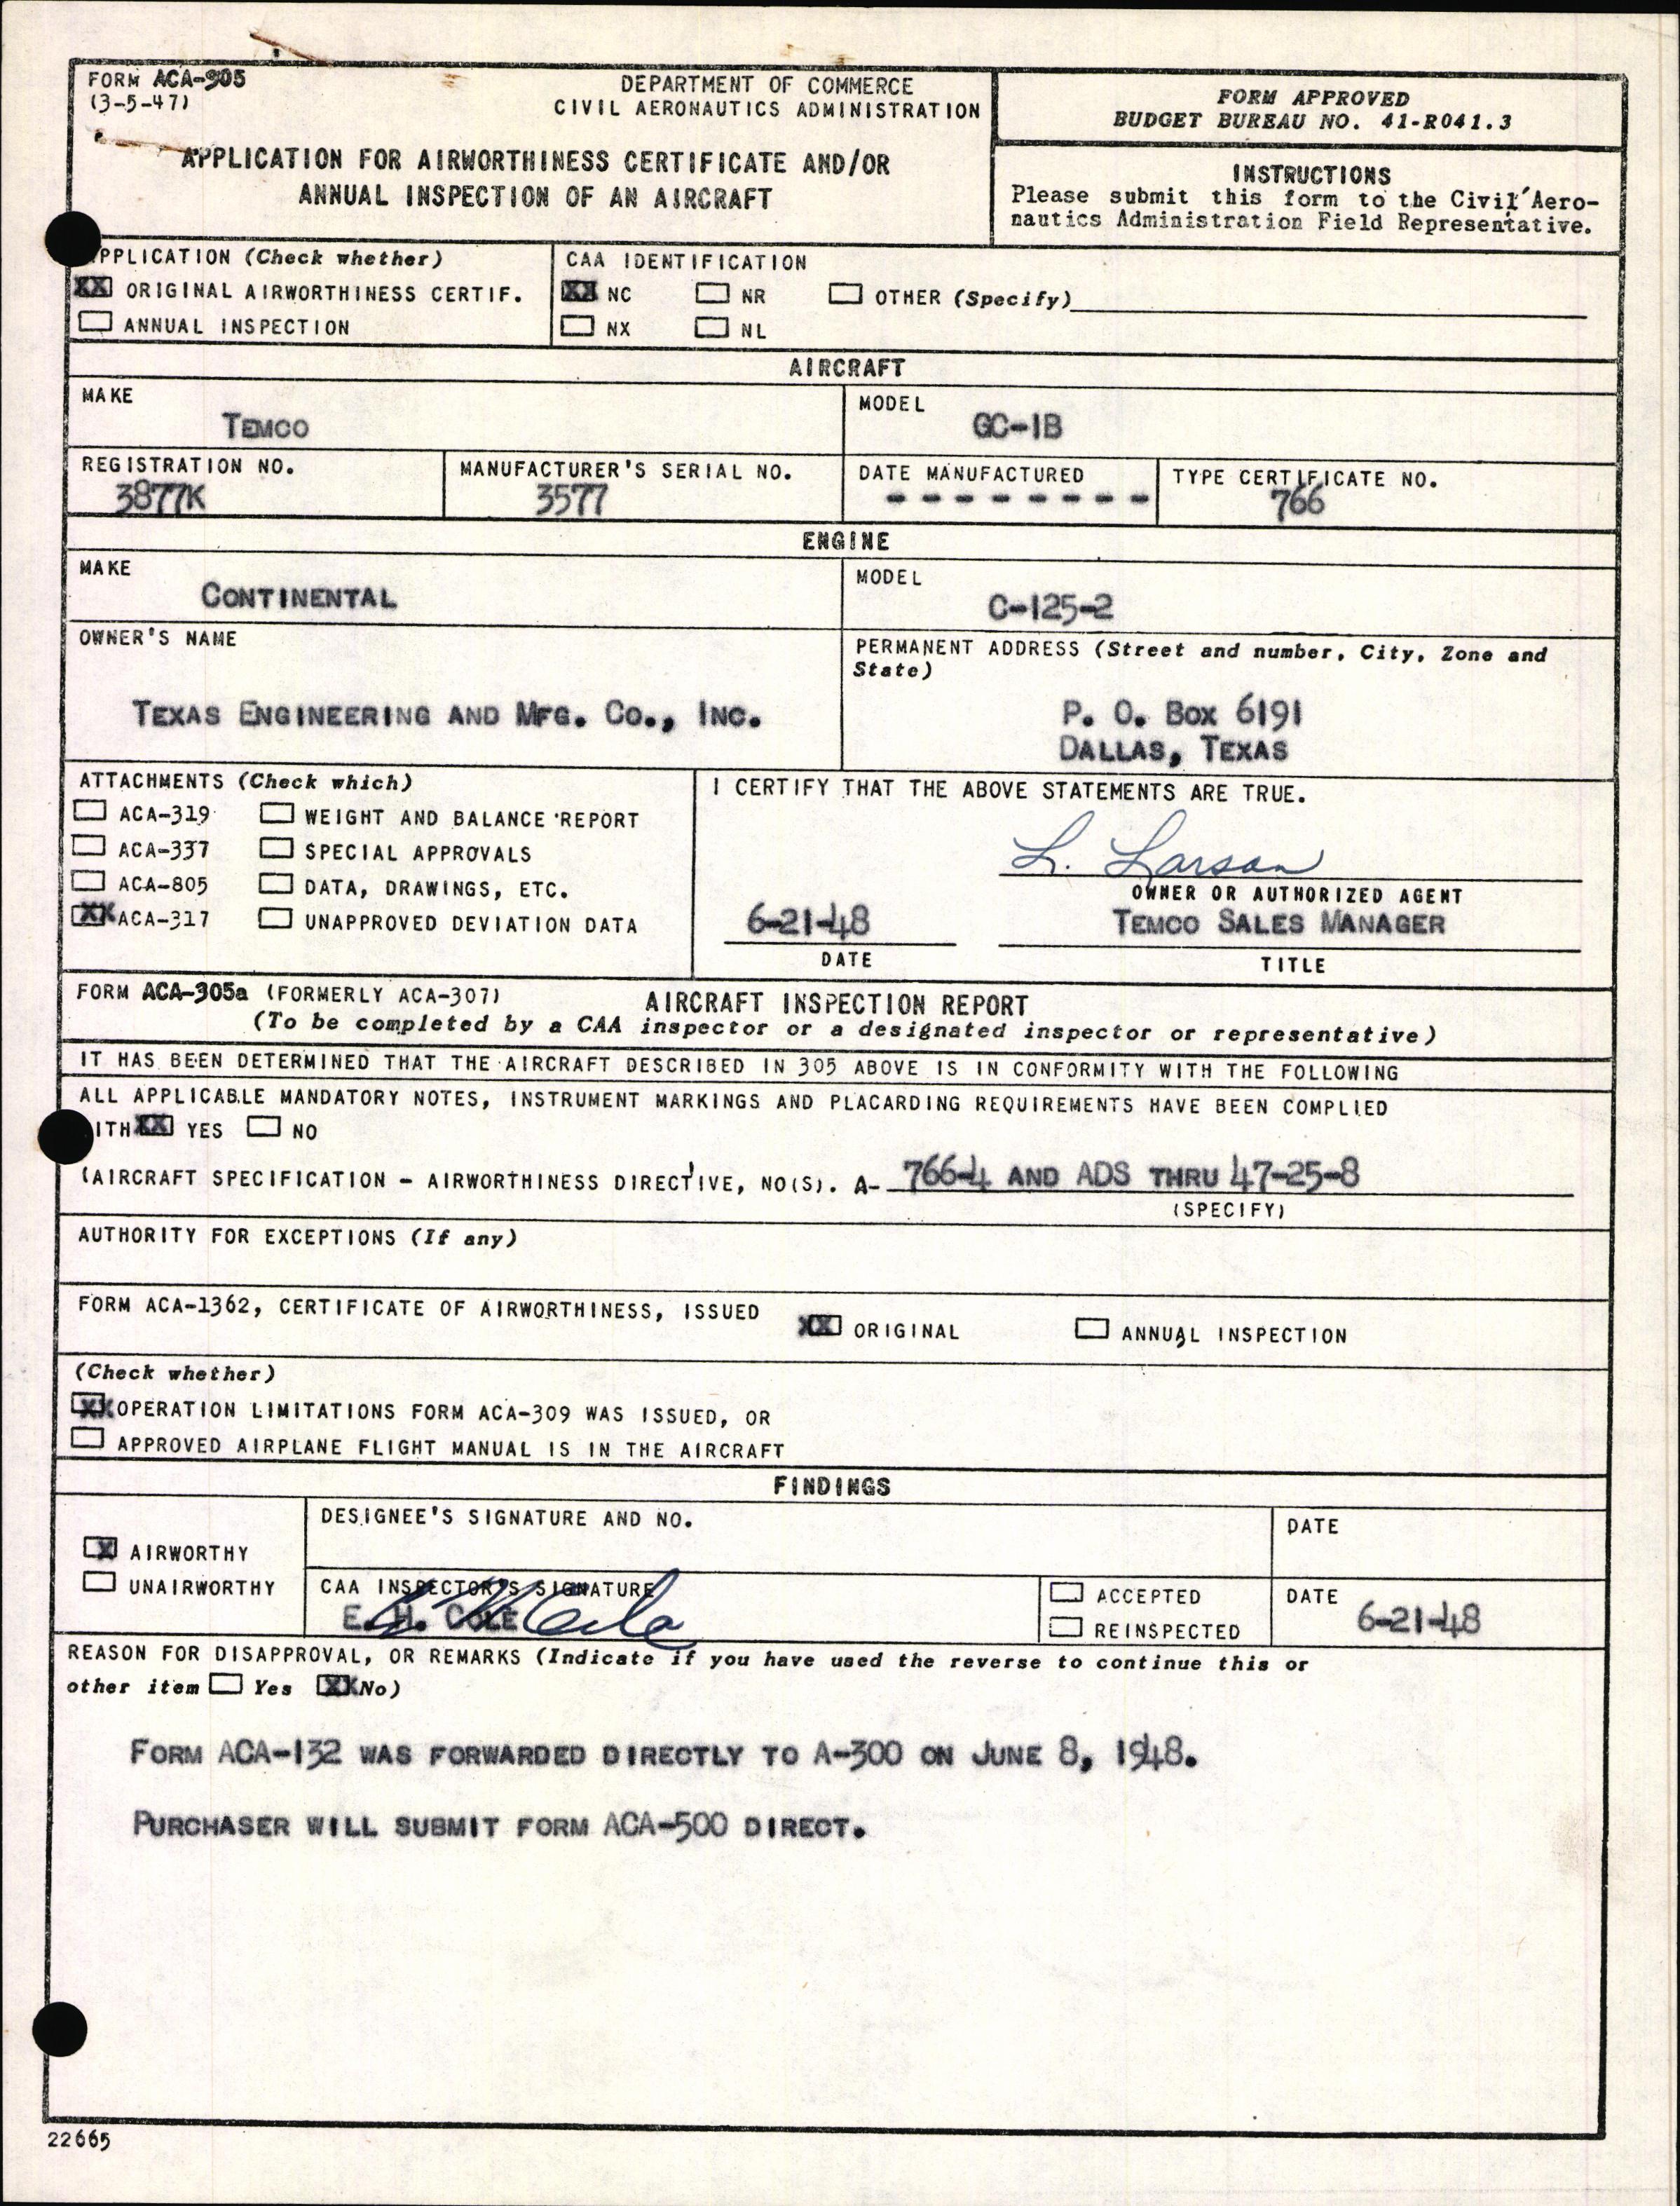 FORM ACA-305
(3-5-47)
DEPARTMENT OF COMMERCE
CIVIL AERONAUTICS ADMINISTRATION
APPLICATION FOR AIRWORTHINESS CERTIFICATE AND/OR
ANNUAL INSPECTION OF AN AIRCRAFT
FORM APPROVED
BUDGET BUREAU NO. 41-R041.3
INSTRUCTIONS
Please submit this form to the Civil Aero-
nautics Administration Field Representative.
PPLICATION (Check whether)
XX ORIGINAL AIRWORTHINESS CERTIF.
ANNUAL INSPECTION
CAA IDENTIFICATION
XX NC NR OTHER (Specify)
NX NL
AIRCRAFT
MAKE
TEMCO
MODEL
GC-1B
REGISTRATION NO.
3877K
MANUFACTURER'S SERIAL NO.
3577
DATE MANUFACTURED
- - - - - - - -
TYPE CERTIFICATE NO.
766
ENGINE
MAKE
CONTINENTAL
MODEL
C-125-2
OWNER'S NAME
TEXAS ENGINEERING AND MFG. CO., INC.
PERMANENT ADDRESS (Street and number, City, Zone and
State)
P. O. BOX 6191
DALLAS, TEXAS
ATTACHMENTS (Check which)
ACA-319 WEIGHT AND BALANCE REPORT
ACA-337 SPECIAL APPROVALS
ACA-805 DATA, DRAWINGS, ETC.
XX ACA-317 UNAPPROVED DEVIATION DATA
I CERTIFY THAT THE ABOVE STATEMENTS ARE TRUE.
L. Larson
OWNER OR AUTHORIZED AGENT
6-21-48 TEMCO SALES MANAGER
DATE TITLE
FORM ACA-305a (FORMERLY ACA-307) AIRCRAFT INSPECTION REPORT
(To be completed by a CAA inspector or a designated inspector or representative)
IT HAS BEEN DETERMINED THAT THE AIRCRAFT DESCRIBED IN 305 ABOVE IS IN CONFORMITY WITH THE FOLLOWING
ALL APPLICABLE MANDATORY NOTES, INSTRUMENT MARKINGS AND PLACARDING REQUIREMENTS HAVE BEEN COMPLIED
ITH XX YES NO
(AIRCRAFT SPECIFICATION - AIRWORTHINESS DIRECTIVE, NO(S). A- 766-4 AND ADS THRU 47-25-8
(SPECIFY)
AUTHORITY FOR EXCEPTIONS (If any)
FORM ACA-1362, CERTIFICATE OF AIRWORTHINESS, ISSUED XX ORIGINAL ANNUAL INSPECTION
(Check whether)
XX OPERATION LIMITATIONS FORM ACA-309 WAS ISSUED, OR
APPROVED AIRPLANE FLIGHT MANUAL IS IN THE AIRCRAFT
FINDINGS
X AIRWORTHY
UNAIRWORTHY
DESIGNEE'S SIGNATURE AND NO.
DATE
CAA INSPECTOR'S SIGNATURE
E. H. COLE
E H Cole
ACCEPTED
REINSPECTED
DATE
6-21-48
REASON FOR DISAPPROVAL, OR REMARKS (Indicate if you have used the reverse to continue this or
other item Yes XX No)
FORM ACA-132 WAS FORWARDED DIRECTLY TO A-300 ON JUNE 8, 1948.
PURCHASER WILL SUBMIT FORM ACA-500 DIRECT.
22665